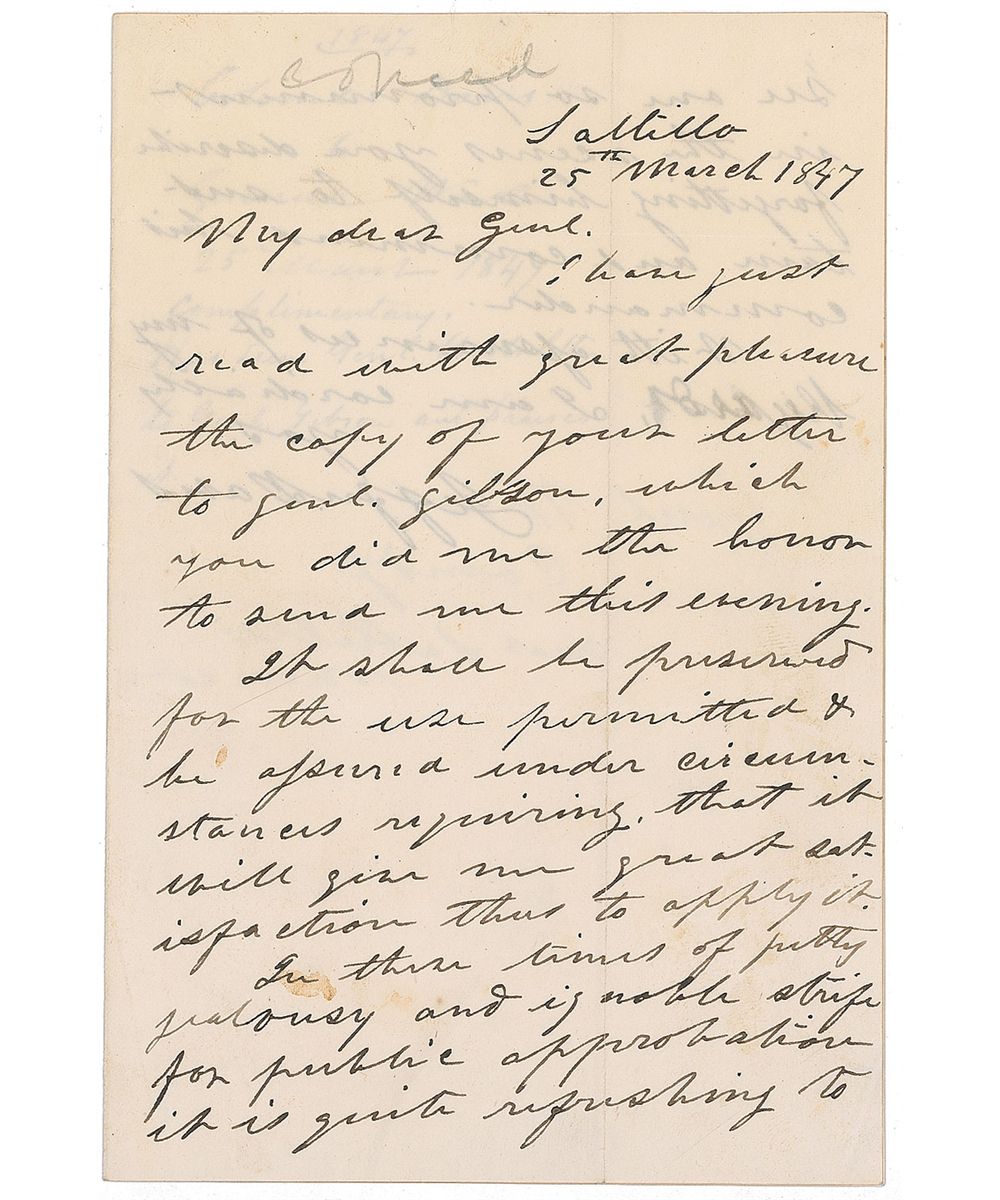 copied
Saltillo
25th March 1847
My dear Genl.
I have just
read with great pleasure
the copy of your letter
to Genl. Gibson, which
you did me the honor
to send me this evening.
It shall be preserved
for the use permitted &
be assured under circum-
stances requiring, that it
will give me great sat-
isfaction thus to apply it.
In these times of petty
jealousy and ignoble strife
for public approbation
it is quite refreshing to